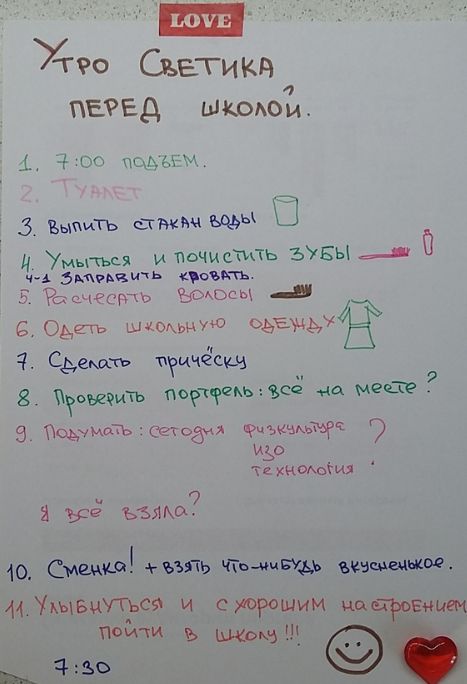 LOVE
Утро Светика
перед школой.
1. 7:00 подъем.
2. Туалет
3. Выпить стакан воды
4. Умыться и почистить зубы
4-1 Заправить кровать.
5. Расчесать волосы
6. Одеть школьную одежду
7. Сделать причёску
8. Проверить портфель: всё на месте?
9. Подумать: сегодня физкультура
изо ?
технология
Я всё взяла?
10. Сменка! + взять что-нибудь вкусненькое.
11. Улыбнуться и с хорошим настроением
пойти в школу!!!
7:30